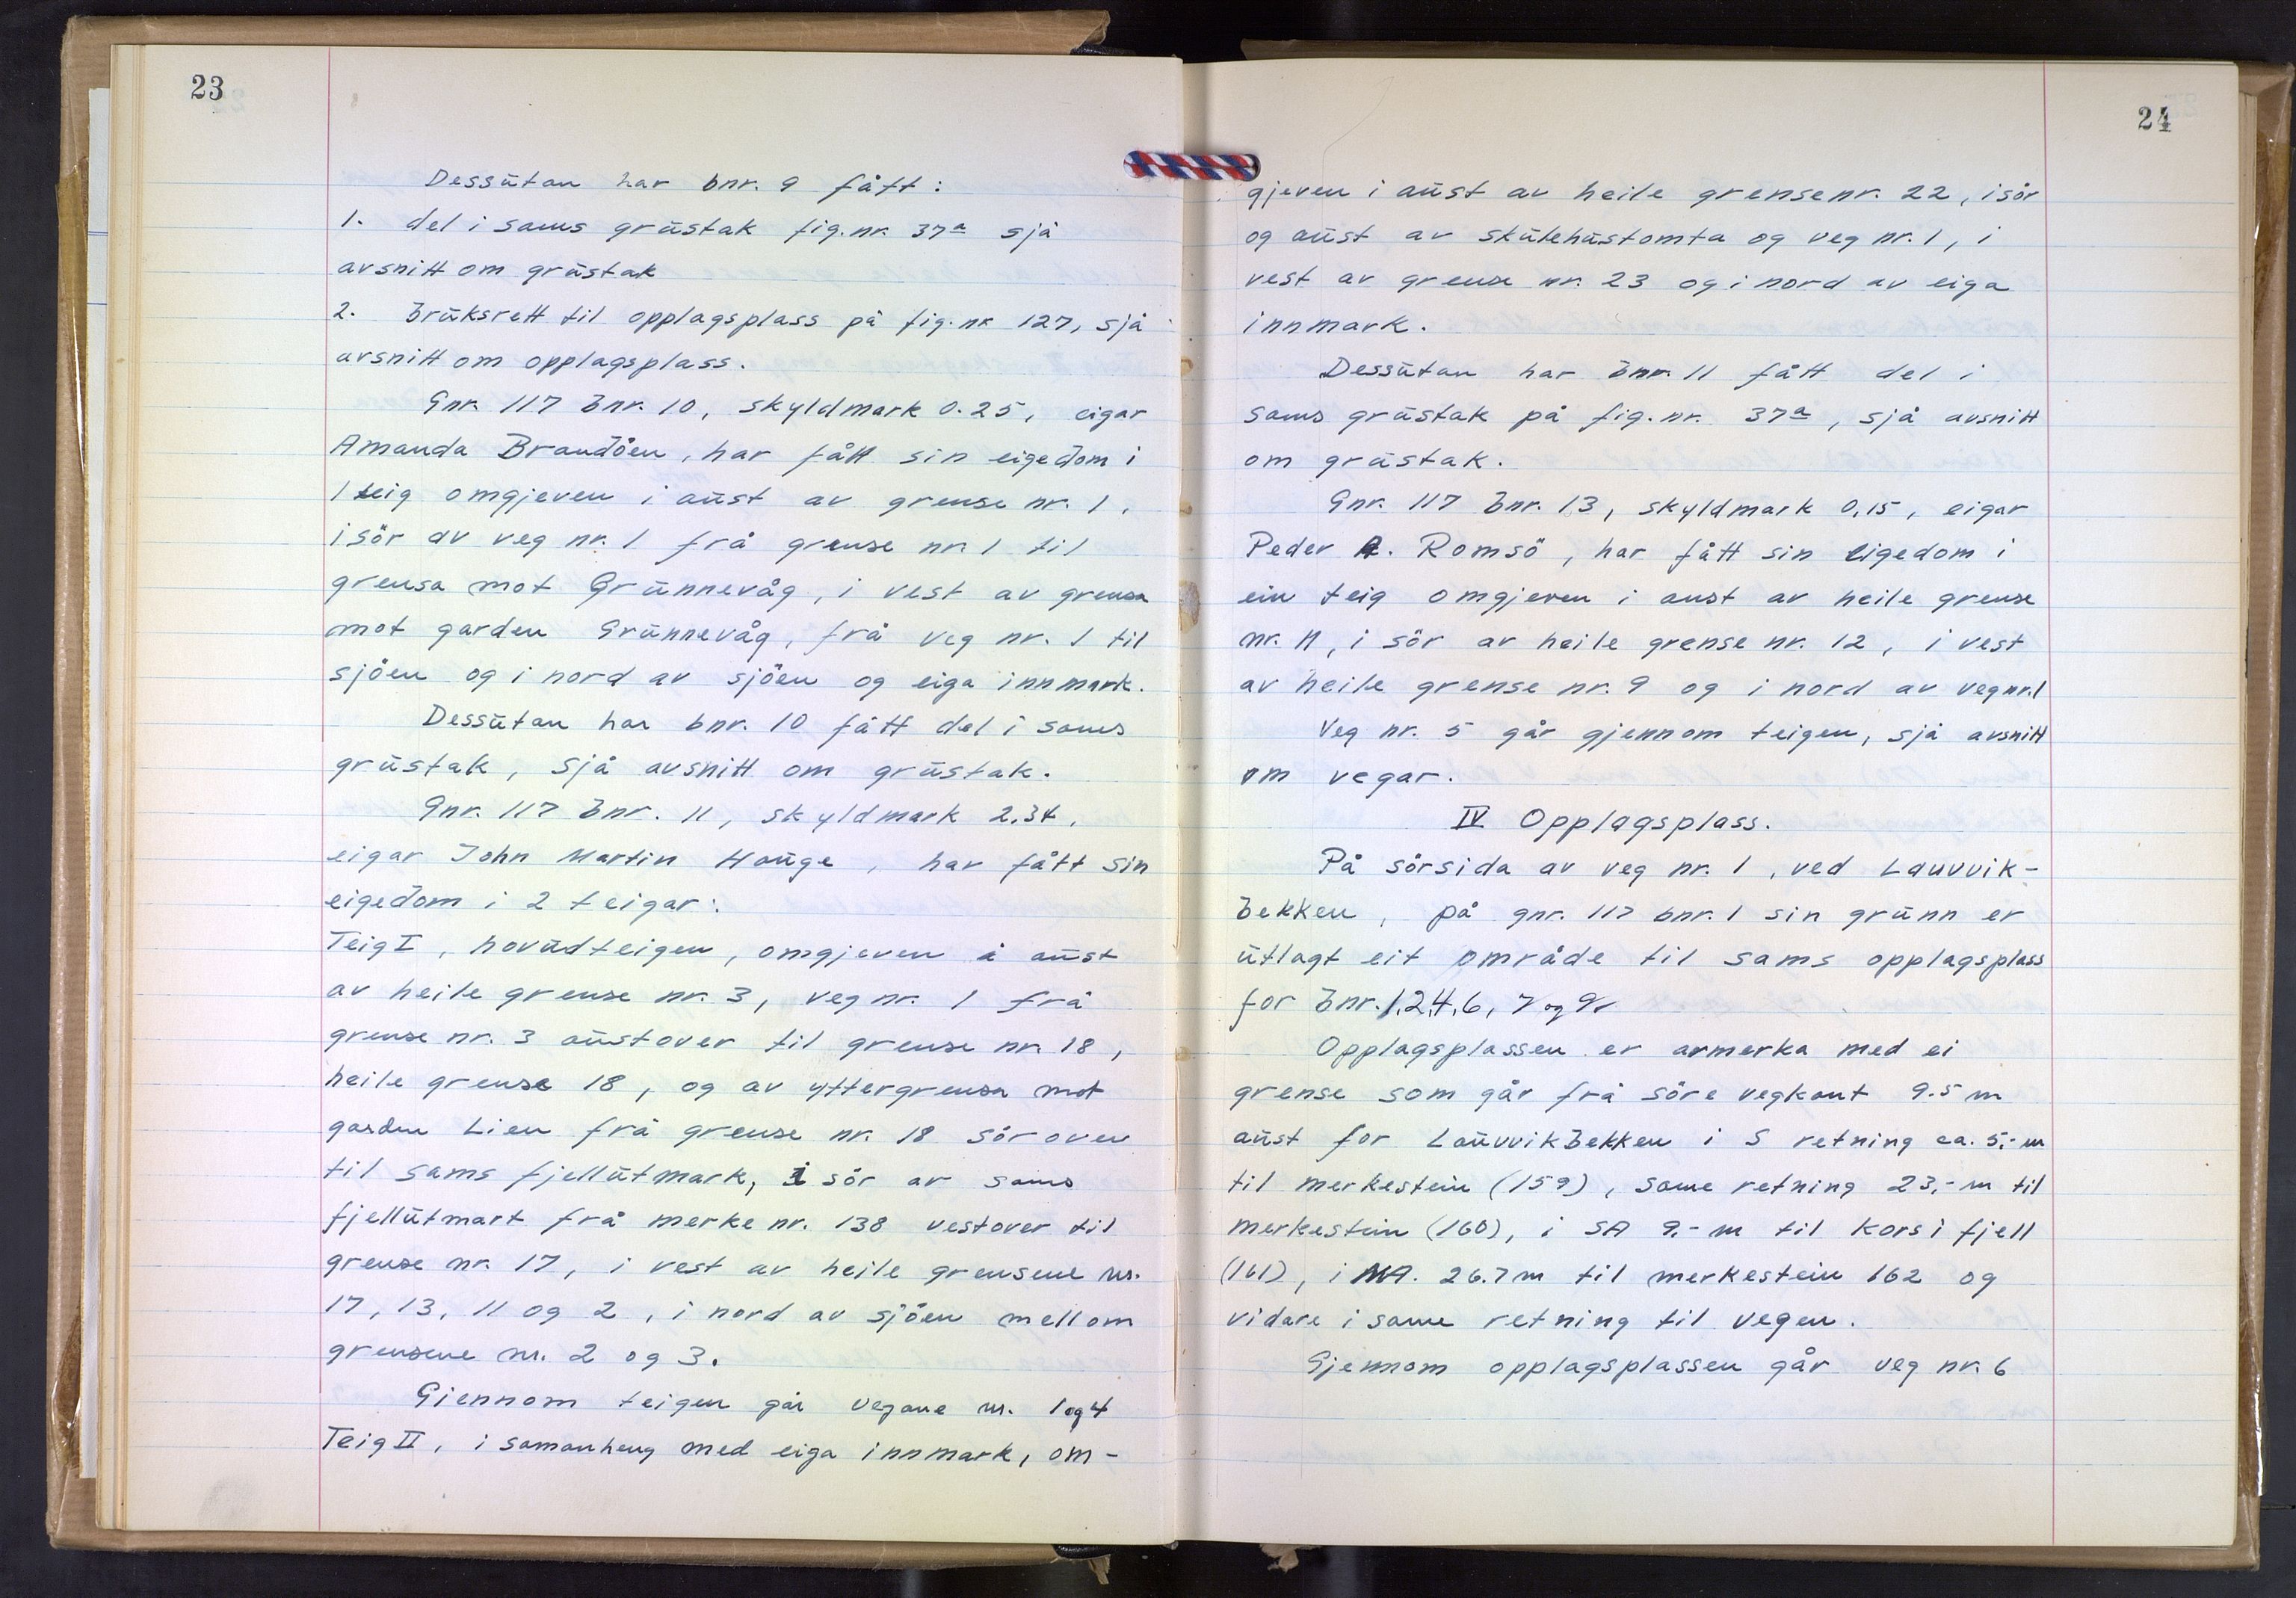 23
Dessutan har bnr. 9 fått:
1. del i sams grustak fig. nr. 37a sjå
avsnitt om grustak
2. bruksrett til opplagsplass på fig. nr 127, sjå
avsnitt om opplagsplass.
Gnr. 117 bnr. 10, skyldmark 0.25, eigar
Amanda Brandöen, har fått sin eigedom i
1 teig omgjeven i aust av grense nr. 1,
i sör av veg nr. 1 frå grense nr. 1 til
grensa mot Grunnevåg, i vest av grensa
mot garden Grunnevåg, frå veg nr. 1 til
sjöen og i nord av sjöen og eiga innmark.
Dessutan har bnr. 10 fått del i sams
grustak, sjå avsnitt om grustak.
Gnr. 117 bnr. 11, skyldmark 2.34,
eigar John Martin Hauge, har fått sin
eigedom i 2 teigar:
Teig I, hovudteigen, omgjeven i aust
av heile grense nr. 3, veg nr. 1 frå
grense nr. 3 austover til grense nr. 18,
heile grense 18, og av yttergrensa mot
garden Lien frå grense nr. 18 sörover
til sams fjellutmark, i sör av sams
fjellutmart frå merke nr. 138 vestover til
grense nr. 17, i vest av heile grensene nr.
17, 13, 11 og 2, i nord av sjöen mellom
grensene nr. 2 og 3.
Gjennom teigen går vegane nr. 1 og 4
Teig II, i samanheng med eiga innmark, om-
24
gjeven i aust av heile grensenr. 22, i sör
og aust av skulehustomta og veg nr. 1, i
vest av grense nr. 23 og i nord av eiga
innmark.
Dessutan har bnr. 11 fått del i
sams grustak på fig. nr. 37a, sjå avsnitt
om grustak.
Gnr. 117 bnr. 13, skyldmark 0,15, eigar
Peder A. Romsö, har fått sin eigedom i
ein teig omgjeven i aust av heile grense
nr. 11, i sör av heile grense nr. 12, i vest
av heile grense nr. 9 og i nord av veg nr. 1
Veg nr. 5 går gjennom teigen, sjå avsnitt
om vegar.
IV Opplagsplass.
På sörsida av veg nr. 1, ved Lauvvik-
bekken, på gnr. 117 bnr. 1 sin grunn er
utlagt eit område til sams opplagsplass
for bnr. 1, 2, 4, 6, 7 og 9.
Opplagsplassen er avmerka med ei
grense som går frå söre vegkant 9.5 m
aust for Lauvvikbekken i S retning ca. 5,- m
til merkestein (159), same retning 23,- m til
merkestein (160), i SA 9,- m til kors i fjell
(161), i NA. 26.7 m til merkestein 162 og
vidare i same retning til vegen.
Gjennom opplagsplassen går veg nr. 6